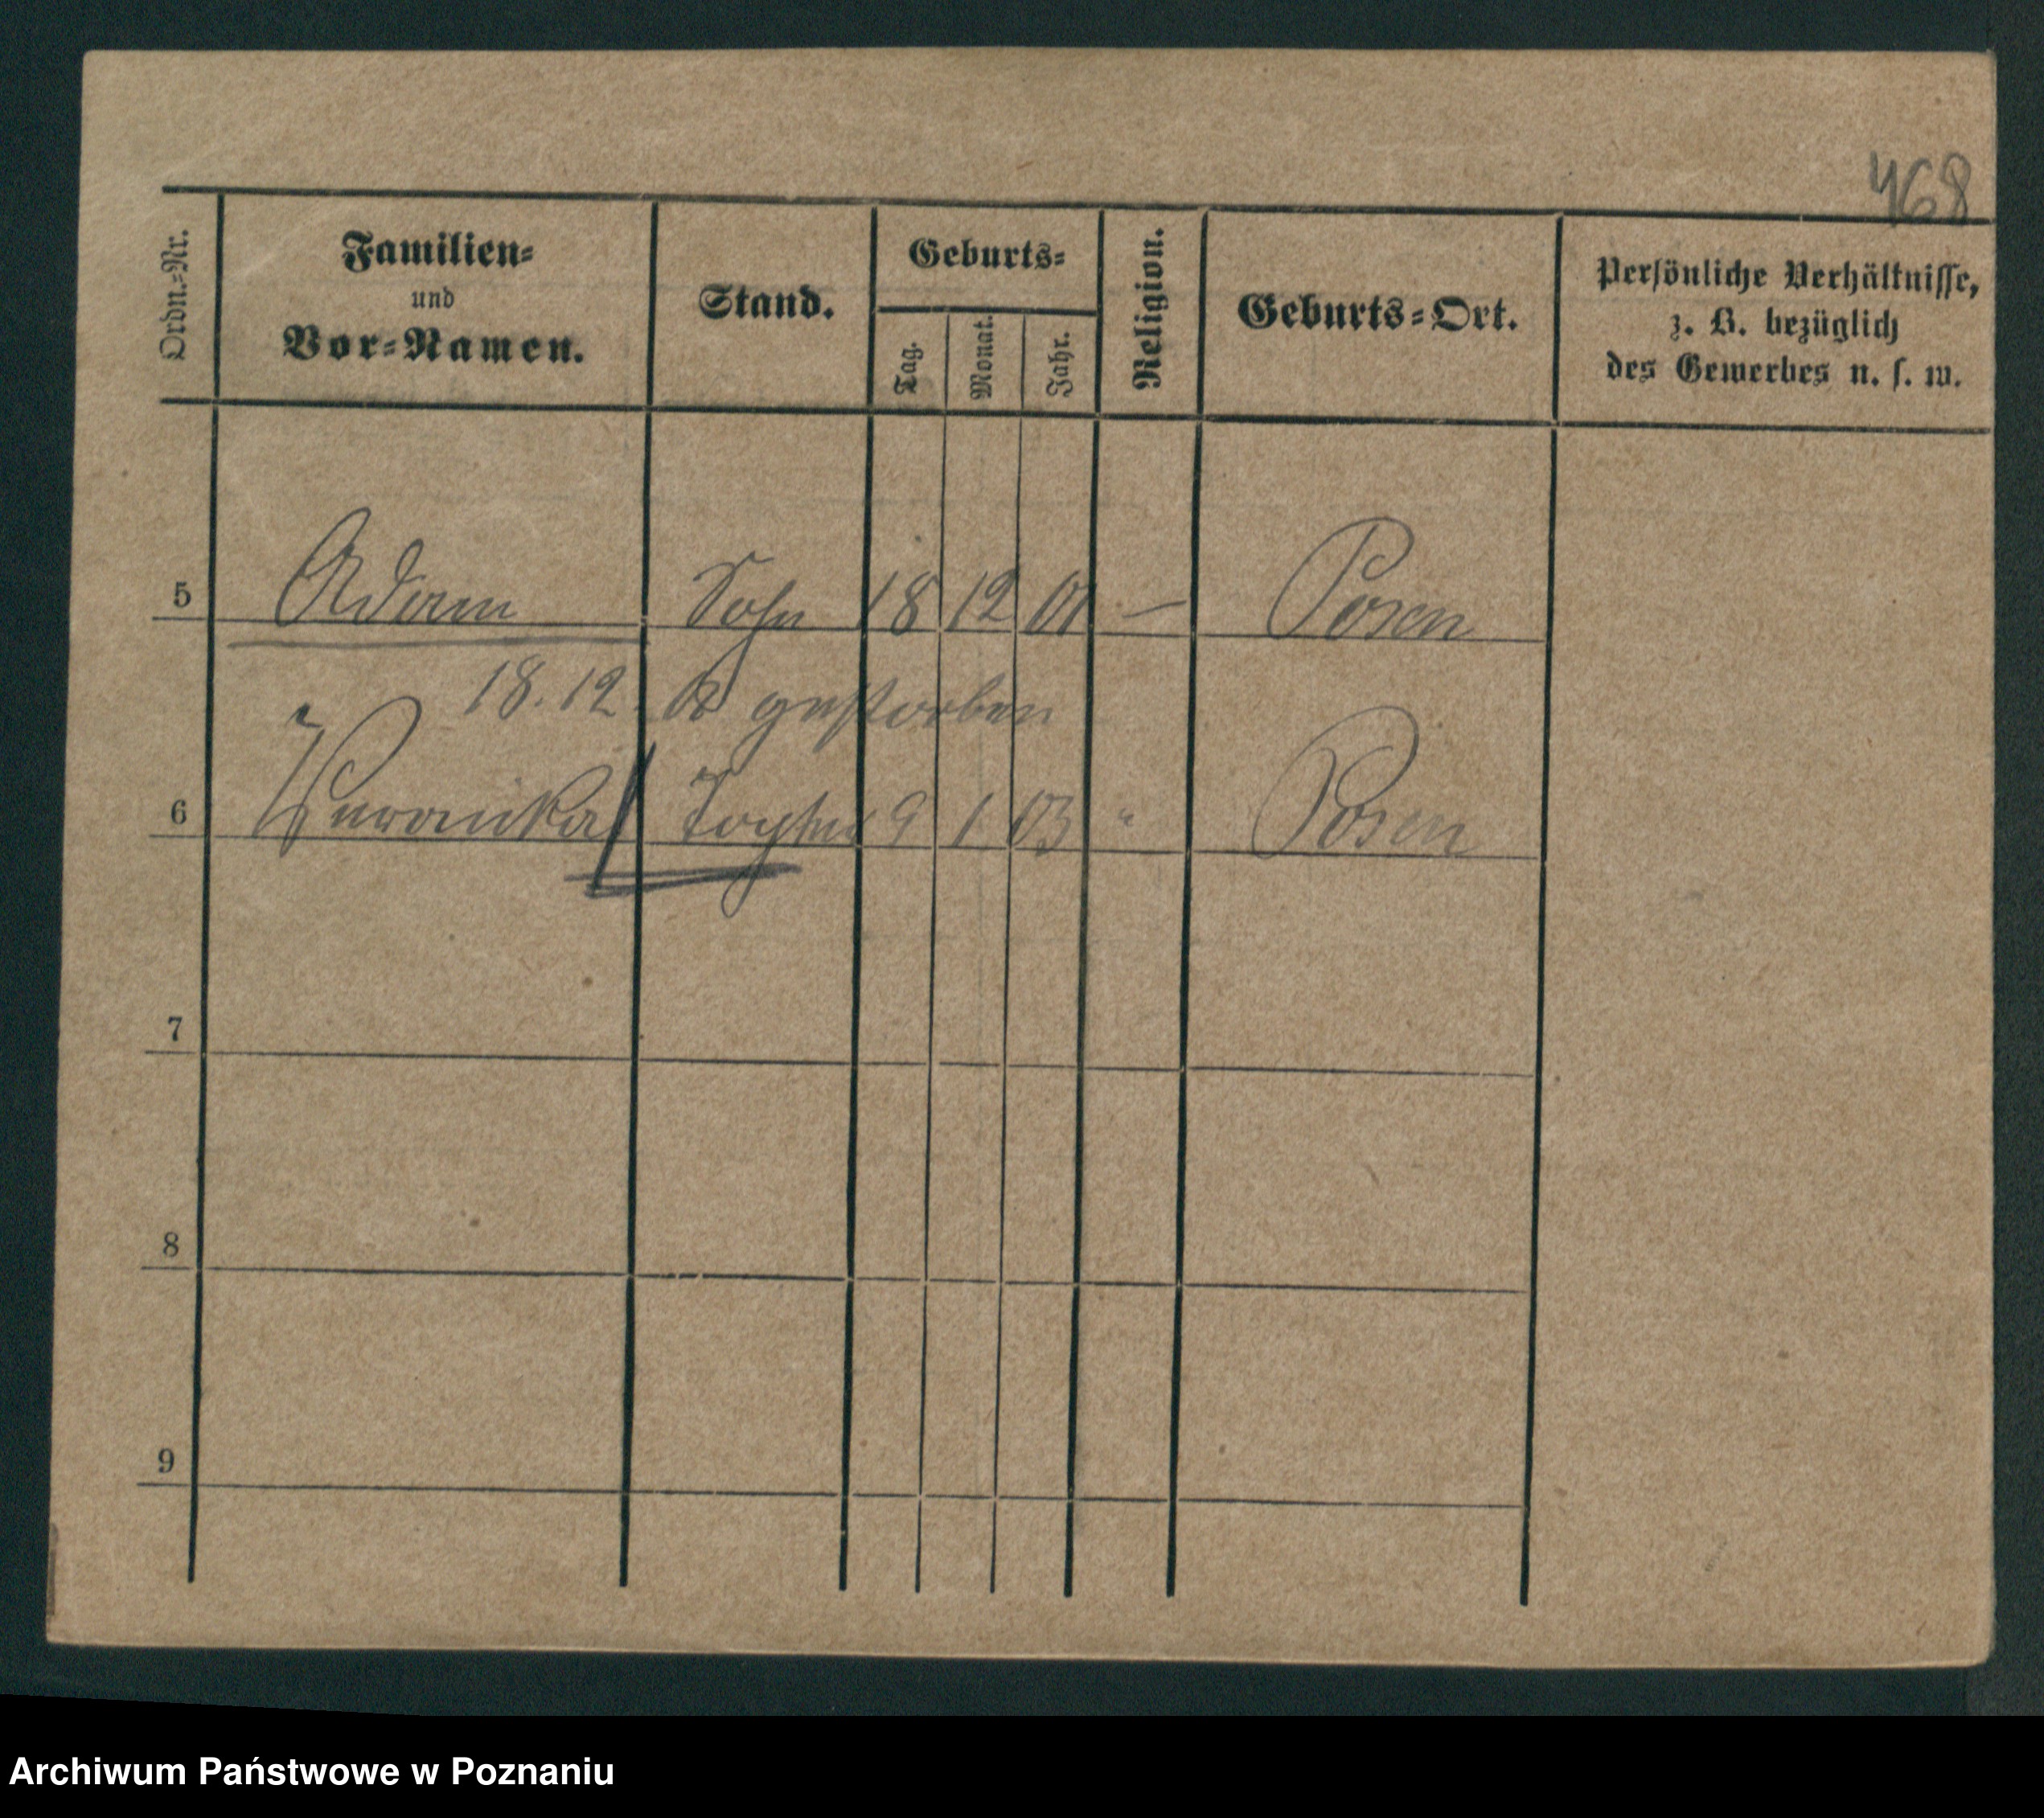 468
Ordn.-Nr.
Familien-
und
Vor-Namen.
Stand.
Geburts-
Tag.
Monat.
Jahr.
Religion.
Geburts-Ort.
Persönliche Verhältnisse,
z. B. bezüglich
des Gewerbes u. s. w.
5 Adam Sohn 18 12 01 — Posen
18.12. gestorben
6 Veronika Tochter 9 1 03 " Posen
7
8
9
Archiwum Państwowe w Poznaniu